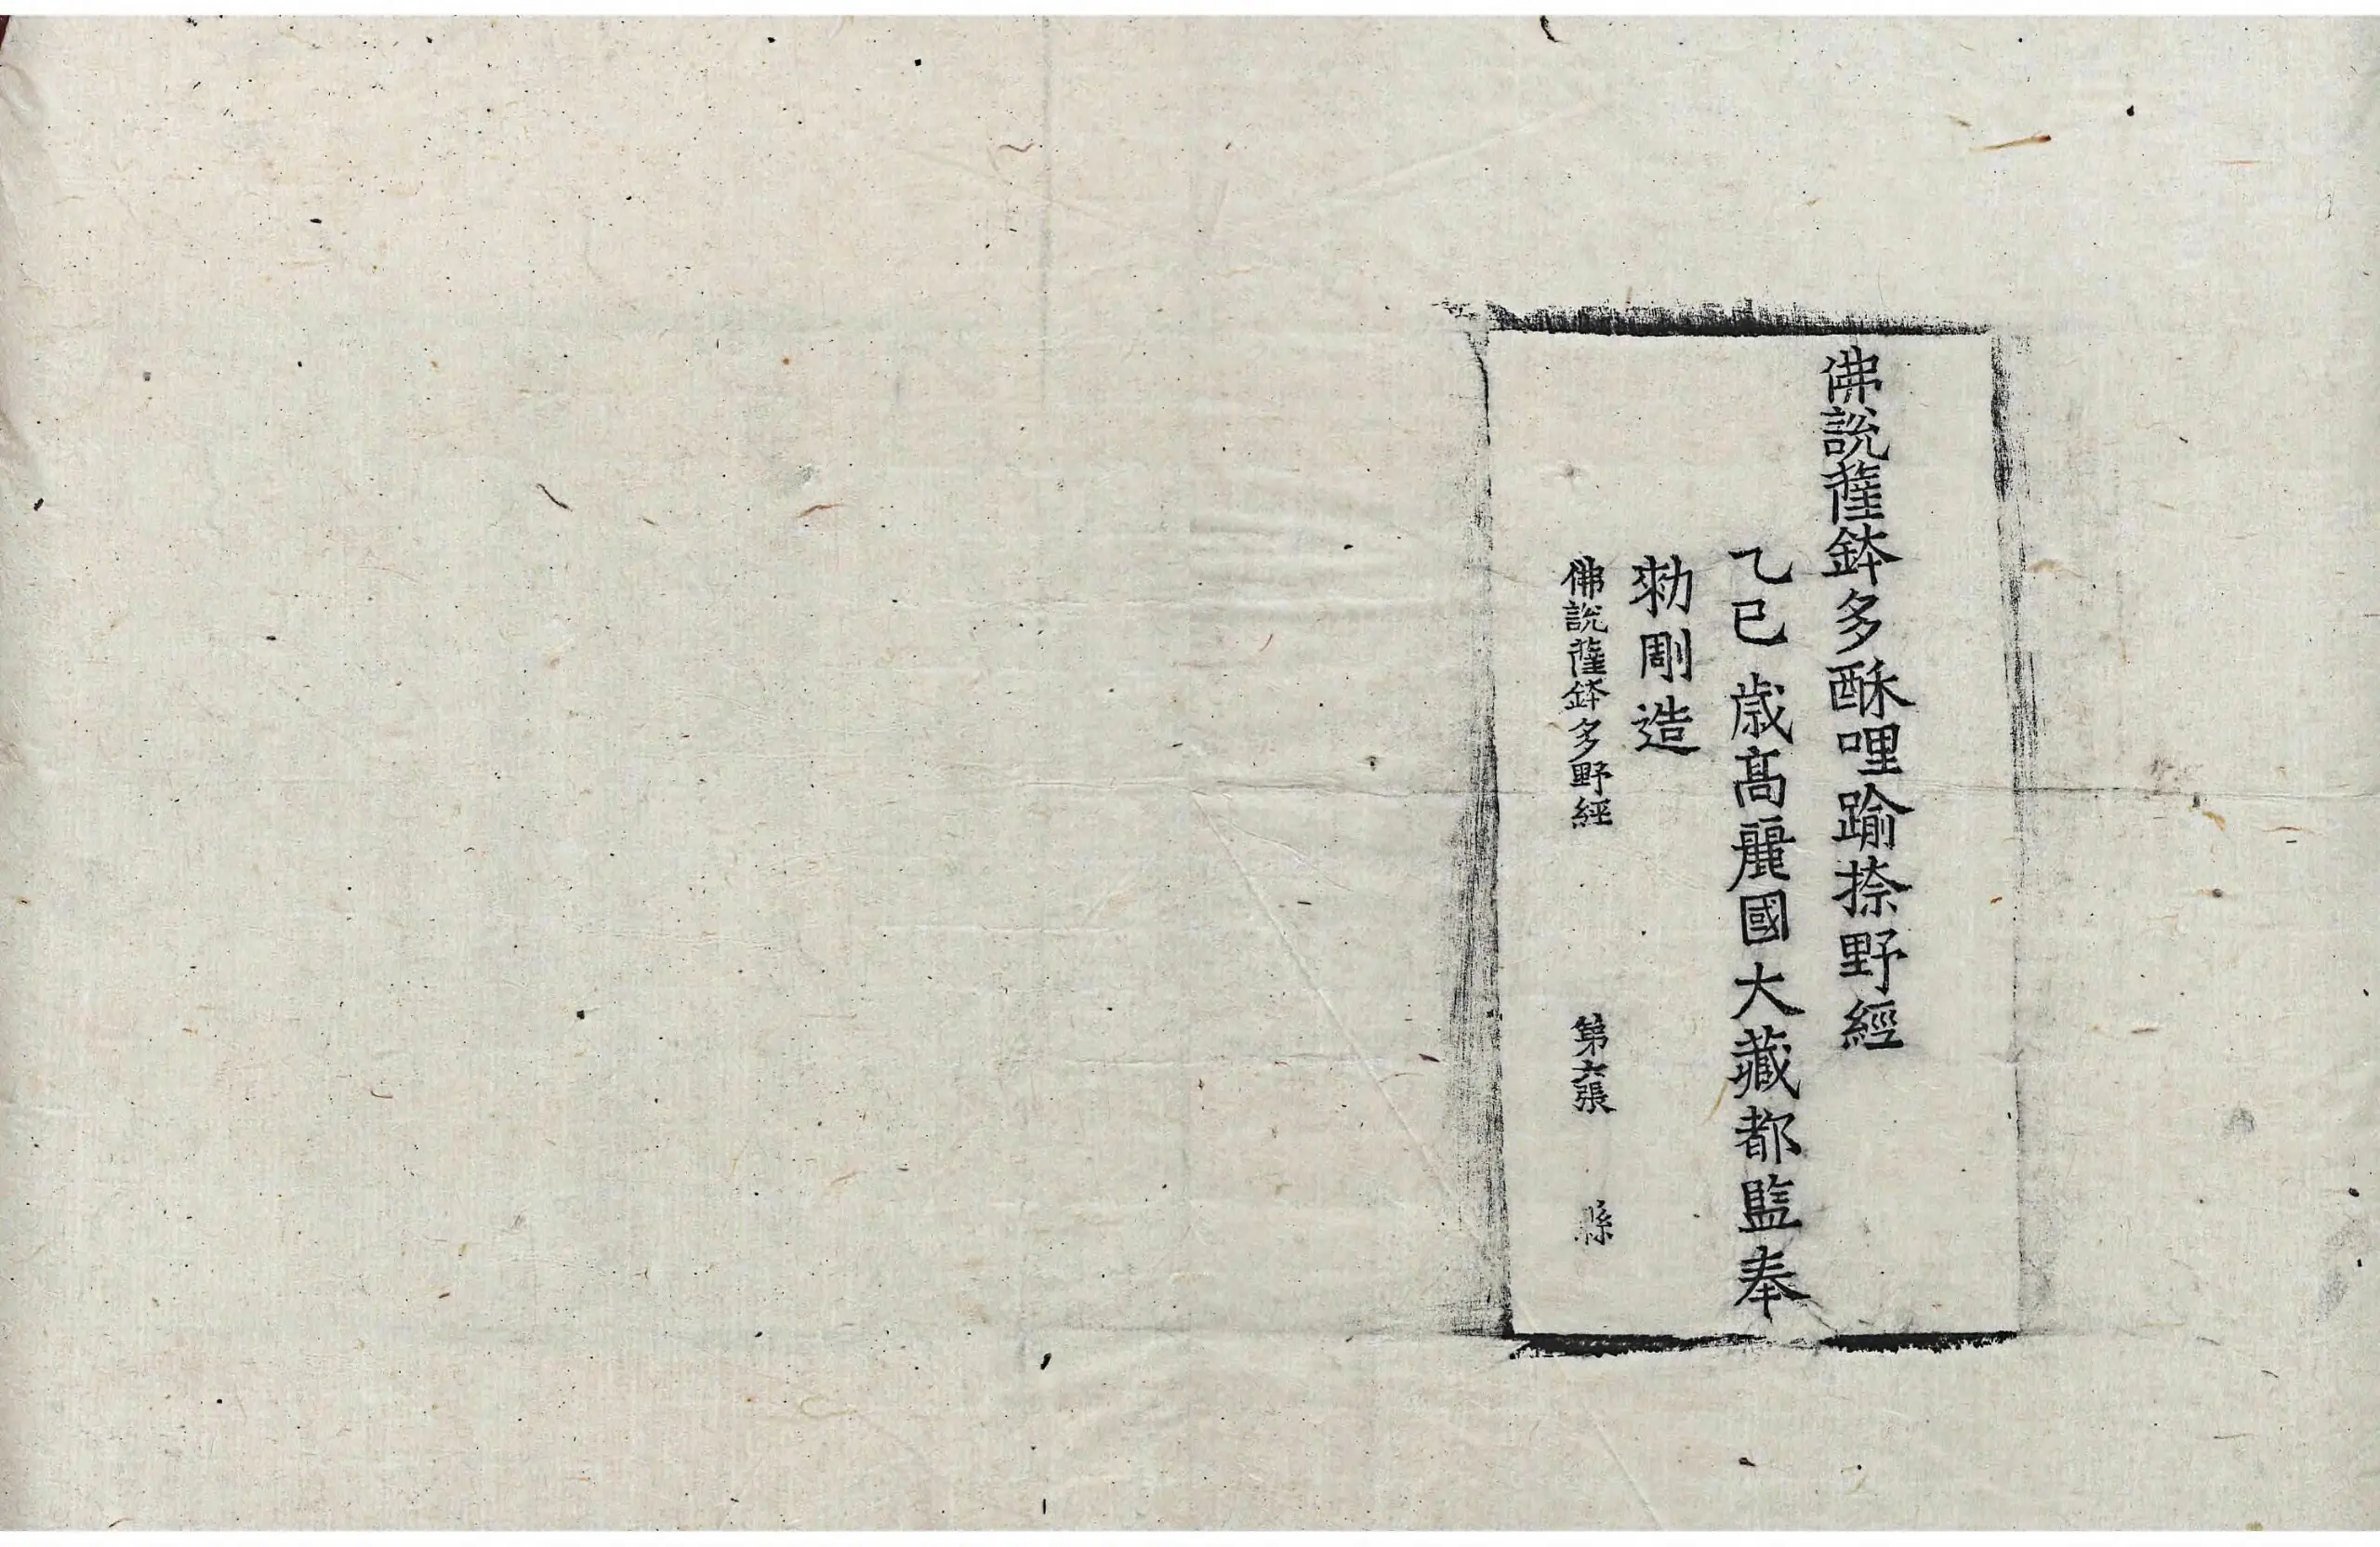 佛說薩鉢多酥哩踰捺野經
乙巳歲高麗國大藏都監奉
勑彫造
佛說薩鉢多野經 第六張 縣